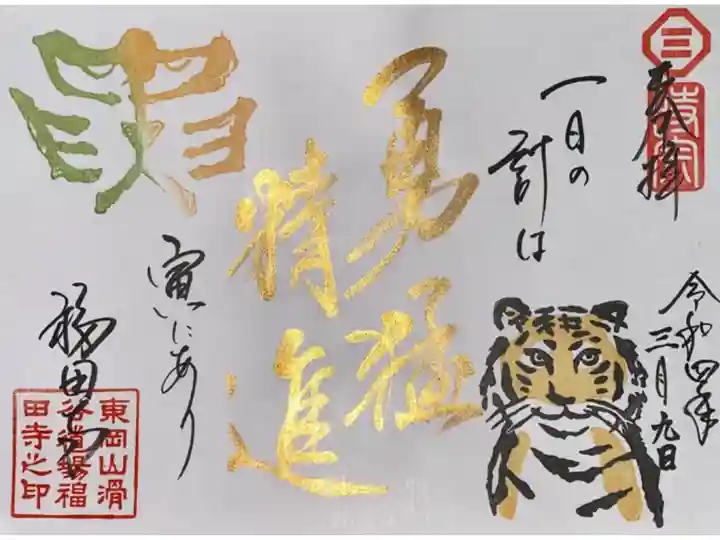 三
奉拝
令和四年
三月九日
一日の
計は
勇猛
特進
寅にあり
福田寺
東岡山滑
谷道錫福
田寺之印